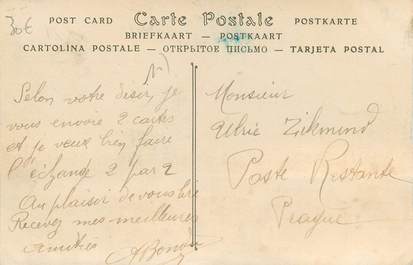 30€
POST CARD Carte Postale POSTKARTE
BRIEFKAART — POSTKAART
CARTOLINA POSTALE — ОТКРЫТОЕ ПИСЬМО — TARJETA POSTAL
Selon votre désir, je
vous envoie 2 cartes
et je veux bien faire
l'échange 2 par 2
Au plaisir de vous lire
Recevez mes meilleures
amitiés
Monsieur
Zikmund
Poste Restante
Prague